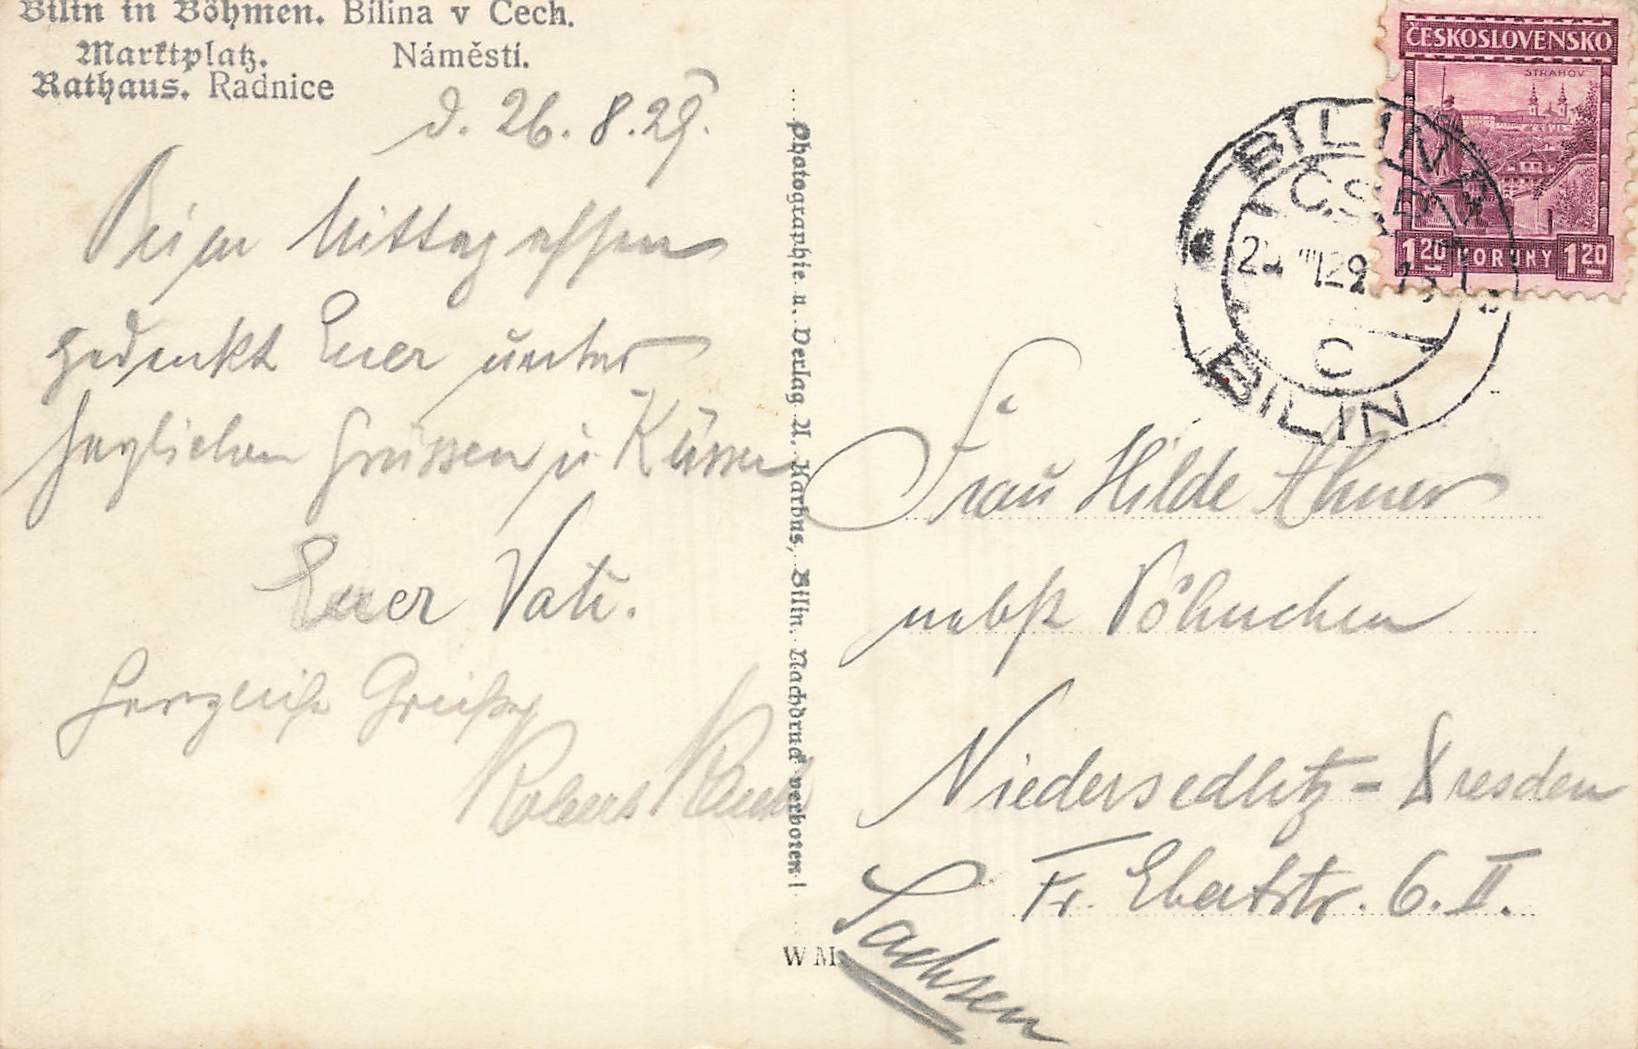 Bilin in Böhmen. Bílina v Cech.
Marktplatz. Náměstí.
Rathaus. Radnice
d. 26. 8. 29.
Beim Mittagessen
gedenkt Euer unter
herzlichen Grüssen u Küssen
Euer Vati.
Herzliche Grüße
Robert
Photographie u. Verlag A. Karbus, Bilin. Nachdruck verboten!
W M
ČESKOSLOVENSKO
STRAHOV
1 20 KORUNY 1 20
BILINA
ČSR
29
C
BILIN
Frau Hilde Ahner
nebst Söhnchen
Niedersedlitz - Dresden
Fr. Ebertstr. 6. II.
Sachsen